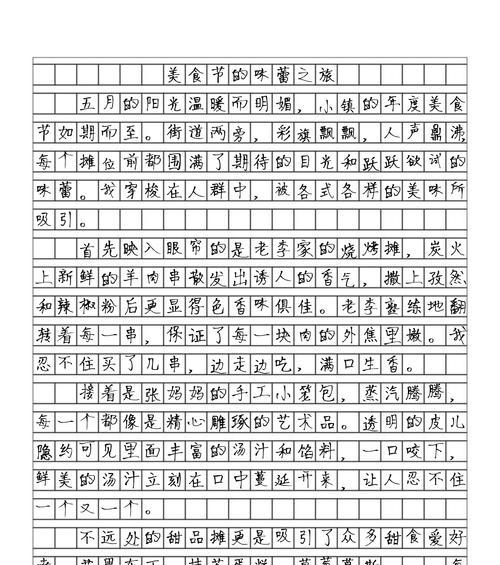 美食节的味蕾之旅
五月的阳光温暖而明媚，小镇的年度美食
节如期而至。街道两旁，彩旗飘飘，人声鼎沸，
每个摊位前都围满了期待的目光和跃跃欲试的
味蕾。我穿梭在人群中，被各式各样的美味所
吸引。
首先映入眼帘的是老李家的烧烤摊，炭火
上新鲜的羊肉串散发出诱人的香气，撒上孜然
和辣椒粉后更显得色香味俱佳。老李熟练地翻
转着每一串，保证了每一块肉的外焦里嫩。我
忍不住买了几串，边走边吃，满口生香。
接着是张妈妈的手工小笼包，蒸汽腾腾，
每一个都像是精心雕琢的艺术品。透明的皮儿
隐约可见里面丰富的汤汁和馅料，一口咬下，
鲜美的汤汁立刻在口中蔓延开来，让人忍不住
一个又一个。
不远处的甜品摊更是吸引了众多甜食爱好